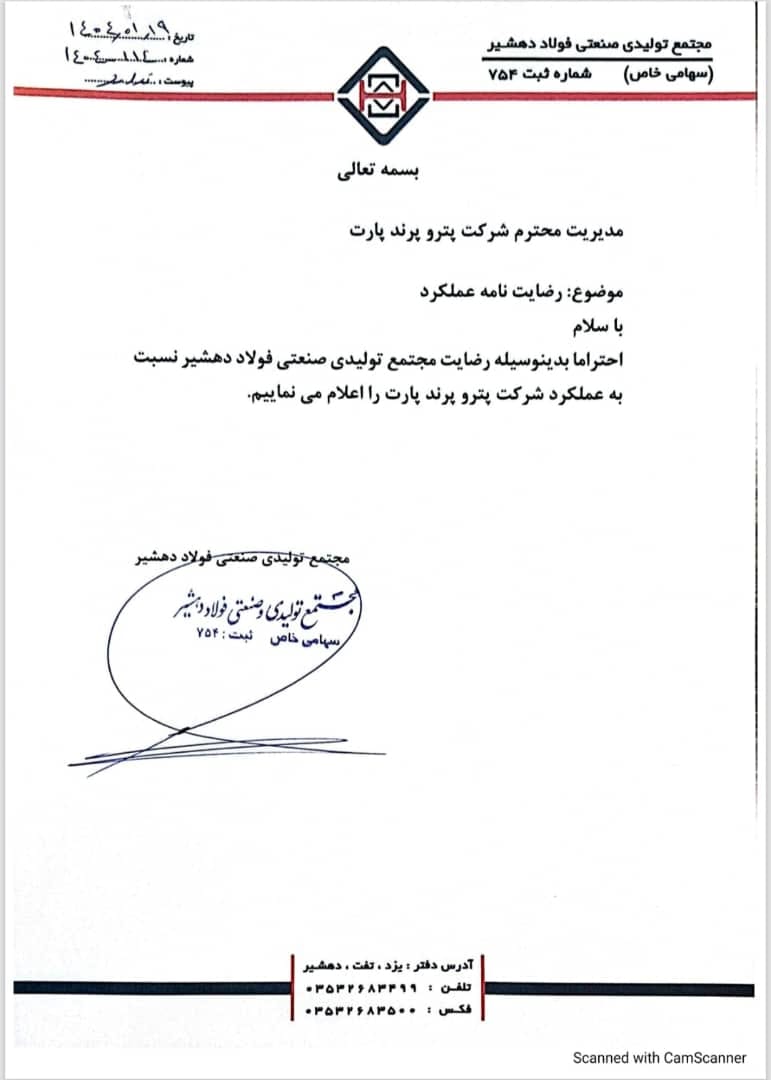 مجتمع تولیدی صنعتی فولاد دهشیر
(سهامی خاص) شماره ثبت ۷۵۴
تاریخ: ۱۴۰۴/۰۱/۱۹
شماره:
پیوست:
بسمه تعالی
مدیریت محترم شرکت پترو پرند پارت
موضوع: رضایت نامه عملکرد
با سلام
احتراما بدینوسیله رضایت مجتمع تولیدی صنعتی فولاد دهشیر نسبت
به عملکرد شرکت پترو پرند پارت را اعلام می نماییم.
مجتمع تولیدی صنعتی فولاد دهشیر
مجتمع تولیدی و صنعتی فولاد دهشیر
سهامی خاص ثبت: ۷۵۴
آدرس دفتر: یزد، تفت، دهشیر
تلفن: ۰۳۵۳۲۶۸۳۴۹۹
فکس: ۰۳۵۳۲۶۸۳۵۰۰
Scanned with CamScanner